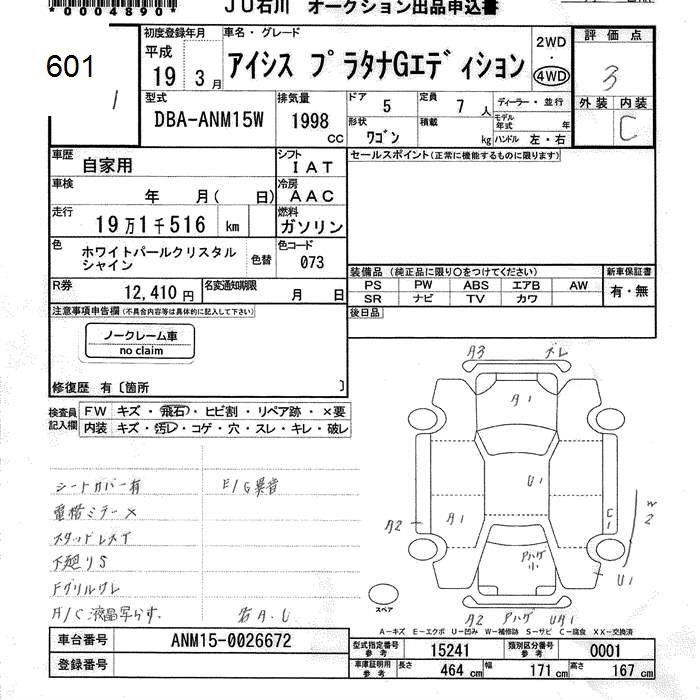 *0004890*
JU石川 オークション出品申込書
601
1
初度登録年月
平成
19 3 月
車名・グレード
アイシス プラタナGエディション
2WD
・
4WD
評価点
3
外装 内装
C
型式
DBA-ANM15W
排気量
1998
CC
ドア
5
定員
7 人
ディーラー・並行
形状
ワゴン
積載
kg
モデル年式 年
ハンドル 左・右
車歴
自家用
シフト
IAT
セールスポイント(正常に機能するものに限ります)
車検
年 月( 日)
冷房
AAC
走行
19万1千516 km
燃料
ガソリン
色
ホワイトパールクリスタル
シャイン
色替
色コード
073
装備品 (純正品に限り○をつけてください)
新車保証書
PS PW ABS エアB AW
SR ナビ TV カワ
有・無
R券
12,410円
名変通知期限
月 日
後日品
注意事項申告欄(不具合内容等は具体的に記入して下さい)
ノークレーム車
no claim
修復歴 有〔箇所 〕
検査員
記入欄
FW キズ・飛石・ヒビ割・リペア跡・×要
内装 キズ・汚レ・コゲ・穴・スレ・キレ・破レ
A3 ズレ
A1
U1
A2
A1
C1
W2
U1
アハゲ小
スペア
A2 アハゲ UA1
シートカバー有
E/G異音
電格ミラー×
スタッドレスT
下廻りS
Fグリルワレ
A/C液晶写らず.
右A.U
A-キズ E-エクボ U-凹み W-補修跡 S-サビ C-腐食 XX-交換済
車台番号
ANM15-0026672
登録番号
型式指定番号
参考
15241
類別区分番号
参考
0001
車庫証明用
参考
長さ
464 cm
幅
171 cm
高さ
167 cm